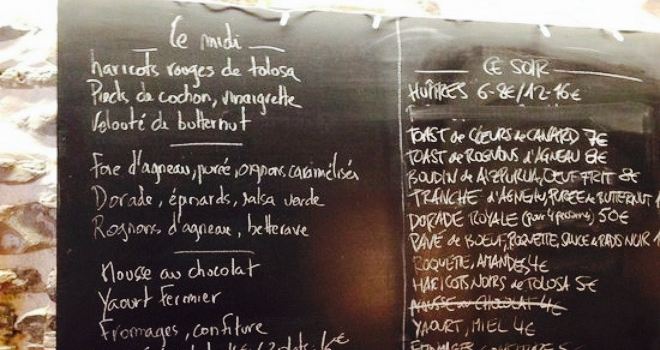 Le midi
haricots rouges de tolosa
Pieds de cochon, vinaigrette
Velouté de butternut
Foie d'agneau, purée, oignons caramélisés
Dorade, épinards, salsa verde
Rognons d'agneau, betterave
Mousse au chocolat
Yaourt Fermier
Fromages, confiture
CE SOIR
HUÎTRES 6-8€/12-16€
TOAST de CŒURS de CANARD 7€
TOAST de ROGNONS D'AGNEAU 8€
BOUDIN de AIZPURUA, ŒUF FRIT 8€
TRANCHE D'AGNEAU, PURÉE de BUTTERNUT
DORADE ROYALE (pour 4 personnes) 50€
PAVÉ de BOEUF, ROQUETTE, SAUCE de RADIS NOIR
ROQUETTE, AMANDES 4€
HARICOTS NOIRS de TOLOSA 5€
MOUSSE au CHOCOLAT 4€
YAOURT, MIEL 4€